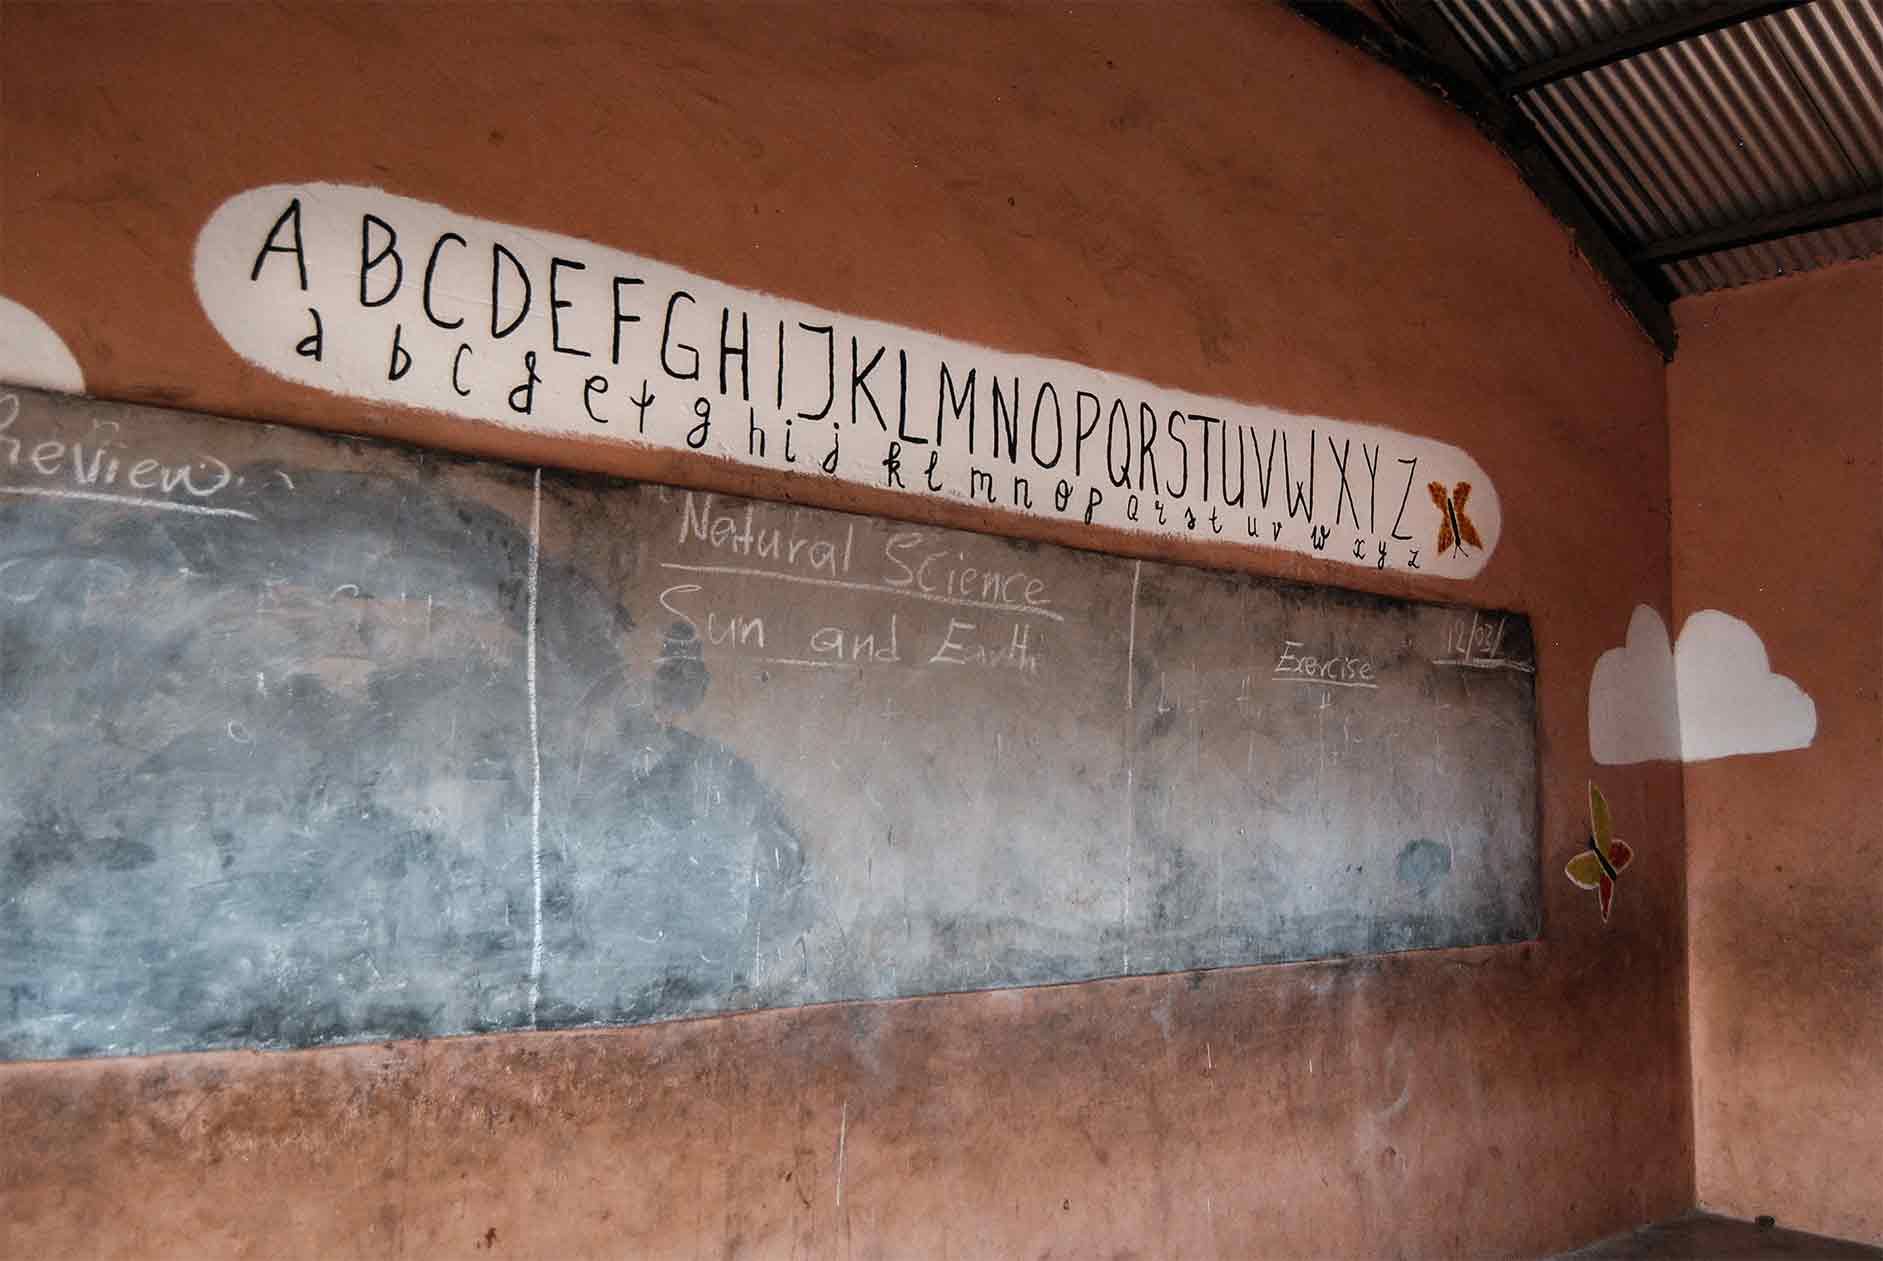 A B C D E F G H I J K L M N O P Q R S T U V W X Y Z
a b c d e f g h i j k l m n o p q r s t u v w x y z
Preview
Natural Science
Sun and Earth
Exercise
12/03/